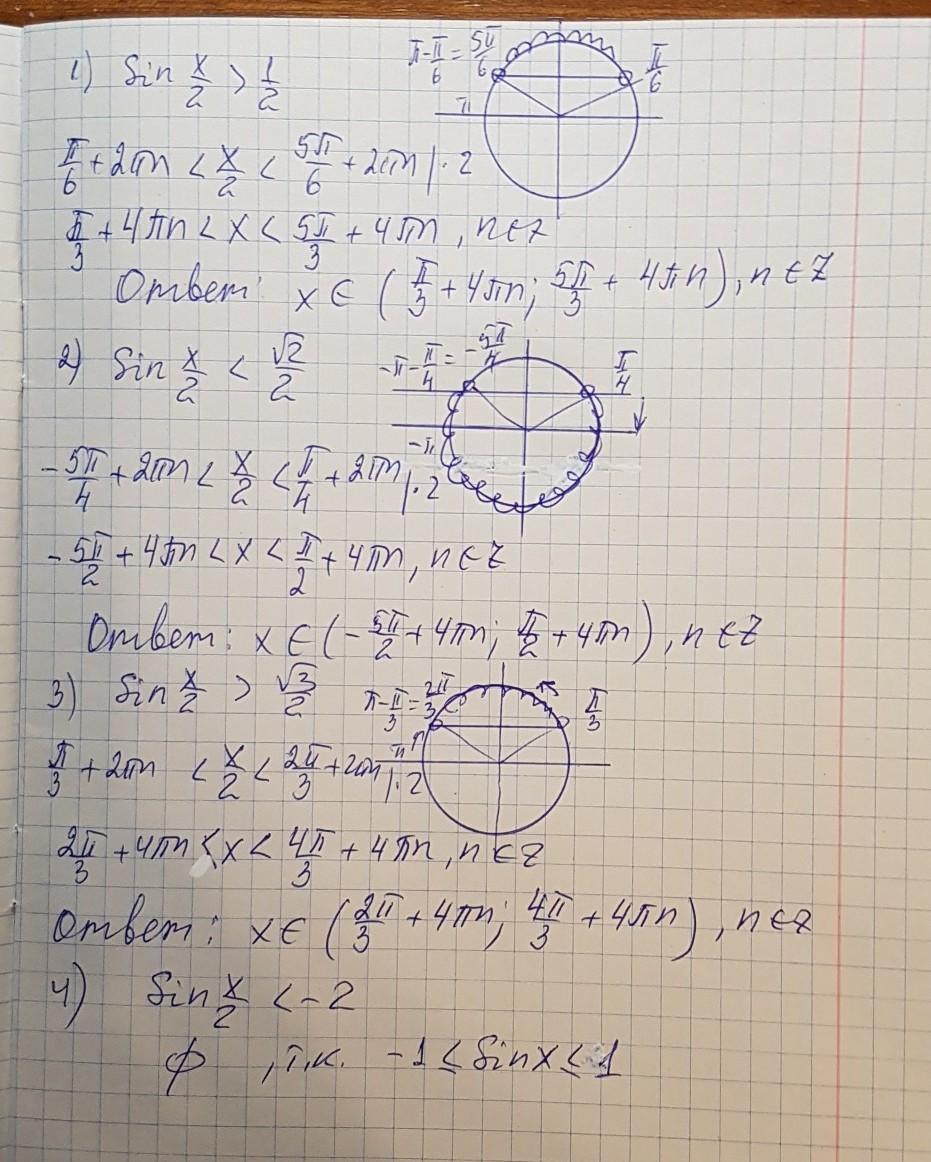 1) Sin x/2 > 1/2
π - π/6 = 5π/6
π/6
π
π/6 + 2πn < x/2 < 5π/6 + 2πn |·2
π/3 + 4πn < x < 5π/3 + 4πn, n ∈ Z
Ответ: x ∈ (π/3 + 4πn; 5π/3 + 4πn), n ∈ Z
2) Sin x/2 < √2/2
-π - π/4 = -5π/4
π/4
-π
-5π/4 + 2πn < x/2 < π/4 + 2πn |·2
-5π/2 + 4πn < x < π/2 + 4πn, n ∈ Z
Ответ: x ∈ (-5π/2 + 4πn; π/2 + 4πn), n ∈ Z
3) Sin x/2 > √3/2
π - π/3 = 2π/3
π/3
π
π/3 + 2πn < x/2 < 2π/3 + 2πn |·2
2π/3 + 4πn < x < 4π/3 + 4πn, n ∈ Z
Ответ: x ∈ (2π/3 + 4πn; 4π/3 + 4πn), n ∈ Z
4) Sin x/2 < -2
∅, т.к. -1 ≤ Sinx ≤ 1